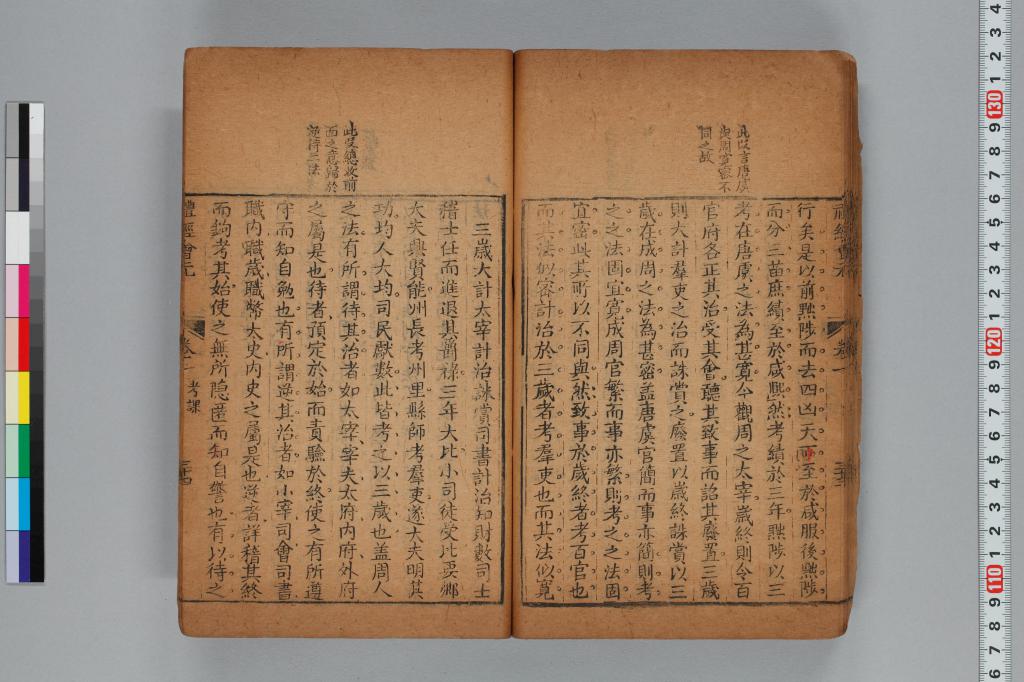 此段言唐虞
與周寬密不
同之故
禮經會元
卷一
行矣是以前黜陟而去四凶一大而至於咸服後黜陟
而分三苗庶績至於咸熙然考績於三年黜陟以三
考在唐虞之法為甚寬今觀周之太宰歲終則令百
官府各正其治受其會聽其致事而詔其廢置三歲
則大計羣吏之治而誅賞之廢置以歲終誅賞以三
歲在成周之法為甚密盖唐虞官簡而事亦簡則考
之之法固宜寬成周官繁而事亦繁則考之之法固
宜密此其所以不同與然致事於歲終者考百官也
而其法似密計治於三歲者考羣吏也而其法似寬
此段總收前
面之意歸於
逆待二法
三歲大計太宰計治誅賞司書計治知財數司士
稽士任而進退其爵祿三年大比小司徒受比要鄉
大夫興賢能州長考州里縣師考羣吏遂大夫明其
功均人大均司民獻數此皆考之以三歲也盖周人
之法有所謂待其治者如太宰宰夫太府內府外府
之屬是也待者頂定於始而責驗於終使之有所遵
守而知自勉也有所謂逆其治者如小宰司會司書
職內職歲職幣太史內史之屬是也逆者詳稽其終
而鈎考其始使之無所隱匿而知自警也有以待之
禮經會元
卷一
考課